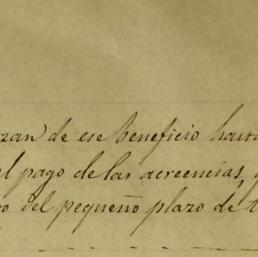 zan de ese beneficio
el pago de las acreencias,
del pequeño plazo de